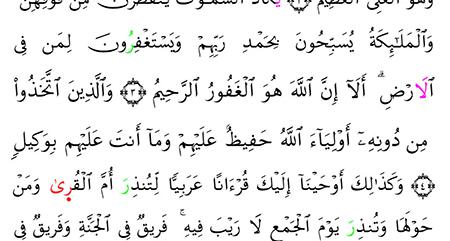 وَهُوَ الْعَلِيُّ الْعَظِيمُ ﴿٢﴾ يَكَادُ السَّمَٰوَٰتُ يَتَفَطَّرْنَ مِن فَوْقِهِنَّ
وَالْمَلَٰٓئِكَةُ يُسَبِّحُونَ بِحَمْدِ رَبِّهِمْ وَيَسْتَغْفِرُونَ لِمَن فِي
الَارْضِۗ أَلَآ إِنَّ اللَّهَ هُوَ الْغَفُورُ الرَّحِيمُ ﴿٣﴾ وَالَّذِينَ اتَّخَذُواْ
مِن دُونِهِۦٓ أَوْلِيَآءَ اللَّهُ حَفِيظٌ عَلَيْهِمْ وَمَآ أَنتَ عَلَيْهِم بِوَكِيلٖ
﴿٤﴾ وَكَذَٰلِكَ أَوْحَيْنَآ إِلَيْكَ قُرْءَانًا عَرَبِيًّا لِّتُنذِرَ أُمَّ الْقُرَىٰ وَمَنْ
حَوْلَهَا وَتُنذِرَ يَوْمَ الْجَمْعِ لَا رَيْبَ فِيهِۚ فَرِيقٌ فِي الْجَنَّةِ وَفَرِيقٌ فِي